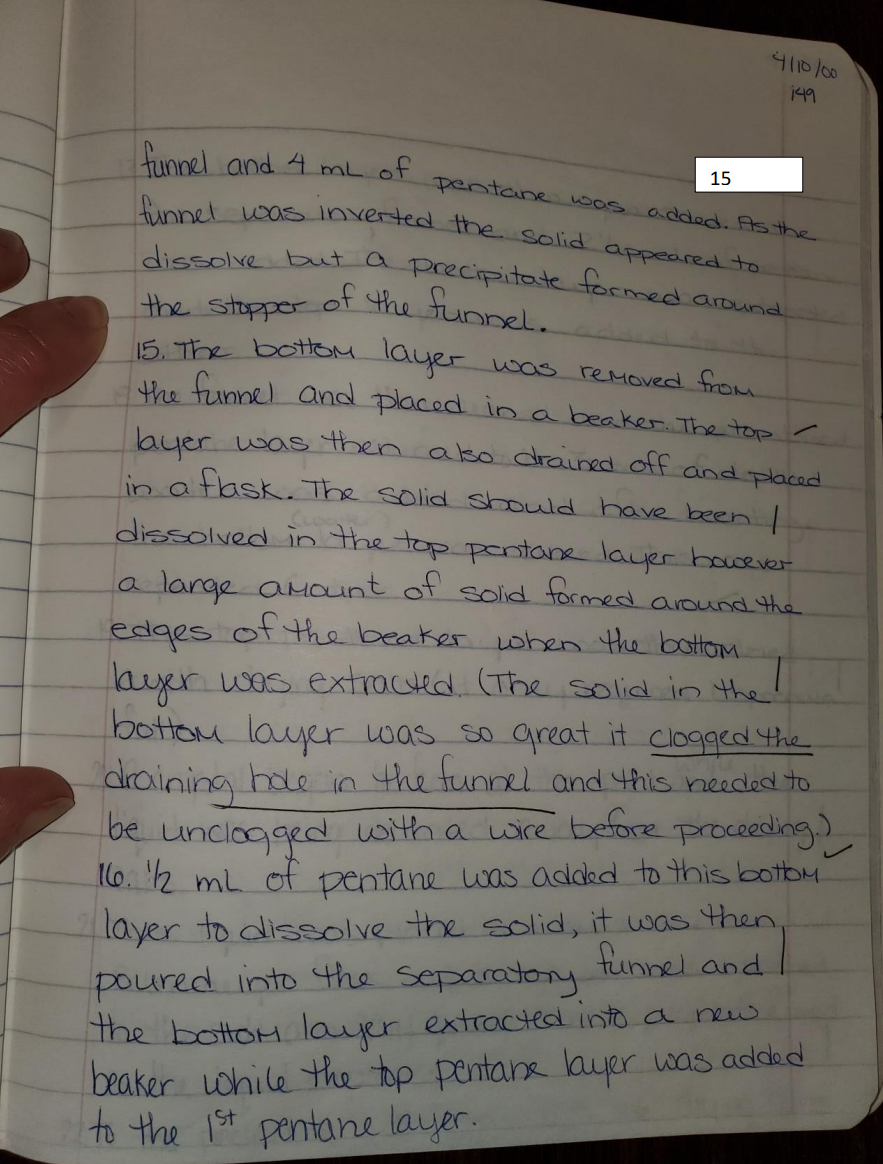 4/10/00
149
15
funnel and 4 mL of pentane was added. As the
funnel was inverted the solid appeared to
dissolve but a precipitate formed around
the stopper of the funnel.
15. The bottom layer was removed from
the funnel and placed in a beaker. The top
layer was then also drained off and placed
in a flask. The solid should have been
dissolved in the top pentane layer however
a large amount of solid formed around the
edges of the beaker when the bottom
layer was extracted. (The solid in the
bottom layer was so great it clogged the
draining hole in the funnel and this needed to
be unclogged with a wire before proceeding.)
16. 1/2 mL of pentane was added to this bottom
layer to dissolve the solid, it was then
poured into the separatory funnel and
the bottom layer extracted into a new
beaker while the top pentane layer was added
to the 1st pentane layer.